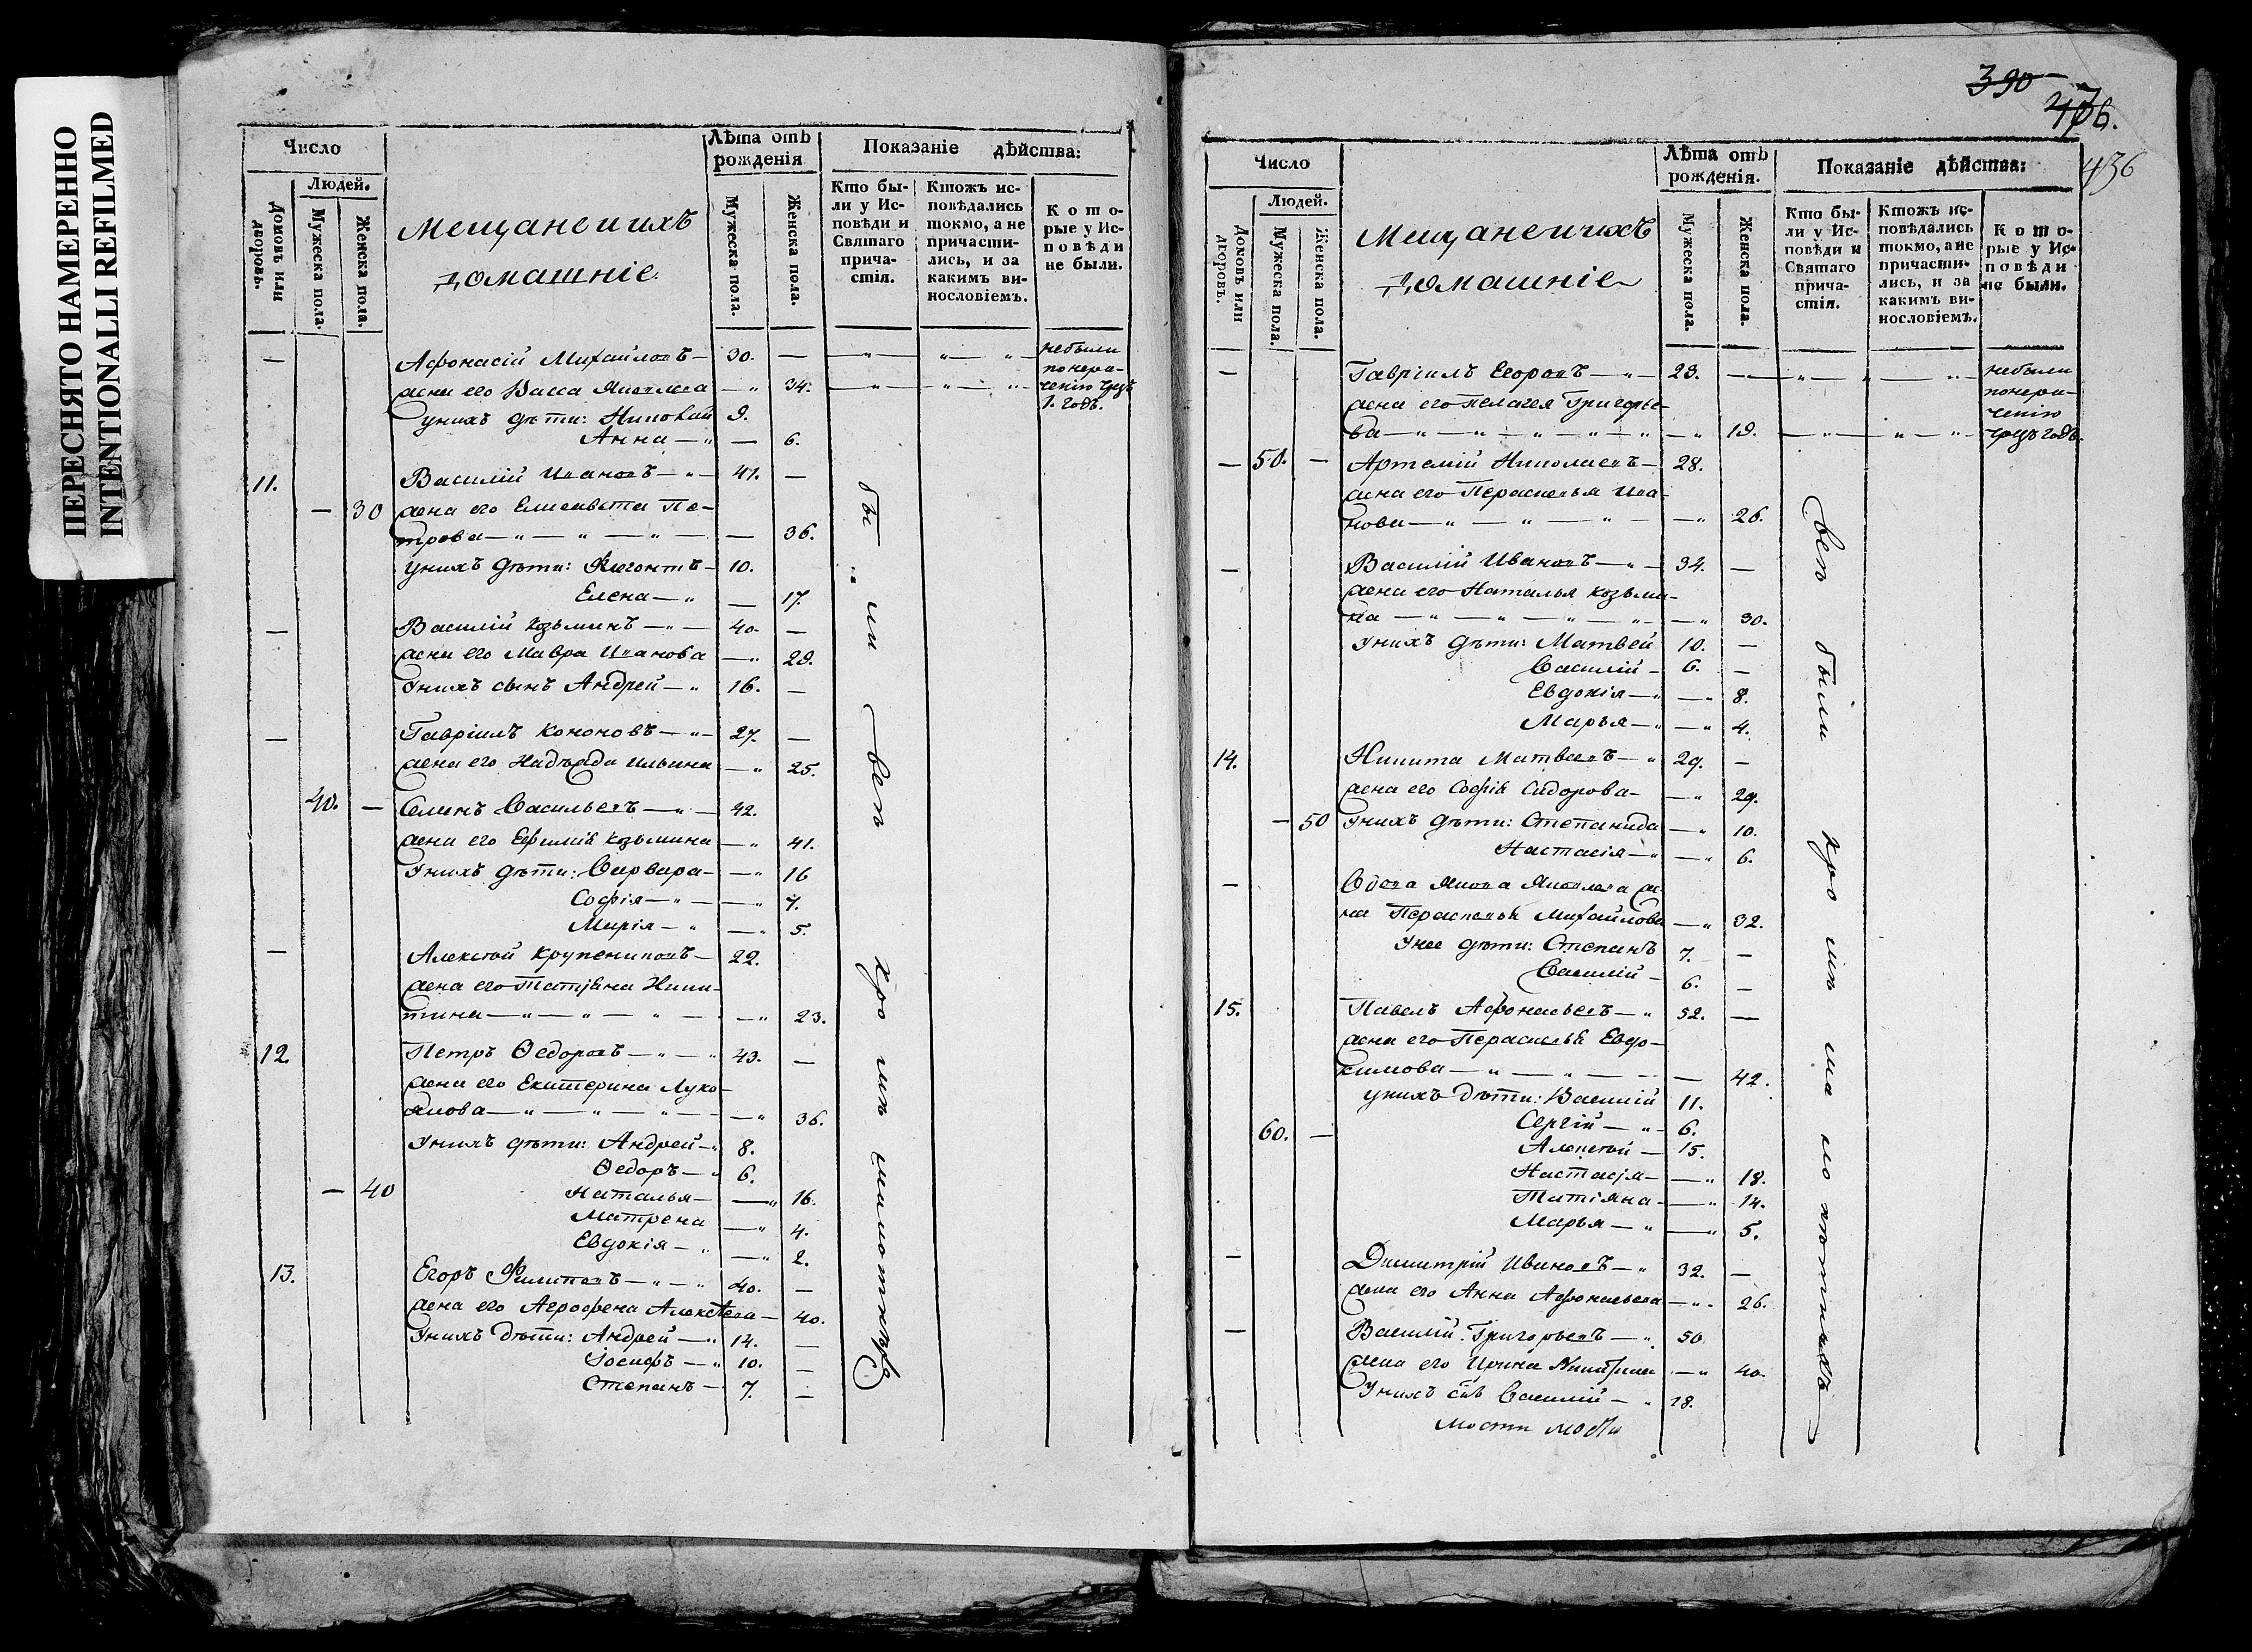 ПЕРЕСНЯТО НАМЕРЕННО
INTENTIONALLI REFILMED
Число
Людей.
Домовъ или дворовъ.
Мужеска пола.
Женска пола.
Мещане и ихъ
домашніе.
Лѣта отъ
рожденія
Мужеска пола.
Женска пола.
Показаніе дѣйства:
Кто бы-
ли у Ис-
повѣди и
Святаго
прича-
стія.
Ктожъ ис-
повѣдались
токмо, а не
причасти-
лись, и за
какимъ ви-
нословіемъ.
Кото-
рые у Ис-
повѣди
не были.
— Афонасій Михайловъ — 30. —
небыли
понера-
ченію чрезъ
1. годъ.
жена его Васса Яковлева — 34.
унихъ дѣти: Николай 9.
Анна — 6.
11. Василій Ивановъ — 41. —
— 30 жена его Елисавета Пе-
трова — 36.
Унихъ дѣти: Флегонтъ — 10.
Елена — 17.
— Василій Козьминъ — 40. —
жена его Мавра Иванова — 29.
Унихъ сынъ Андрей — 16. —
— Гавріилъ Кононовъ — 27. —
жена его Надѣжда Ильина — 25.
40. — Семенъ Васильевъ — 42.
жена его Ефимія Козьмина — 41.
Унихъ дѣти: Варвара — 16
Софія — 7.
Марія — 5.
— Алексѣй Крупениковъ — 22.
жена его Татіяна Ники-
тина — 23.
12. Петръ Ѳедоровъ — 43. —
жена его Екатерина Лукь-
янова — 36.
Унихъ дѣти: Андрей — 8.
Ѳедоръ — 6.
— 40 Наталья — 16.
Матрена — 4.
Евдокія — 2.
13. Егоръ Филиповъ — 40. —
жена его Агрофена Алексѣева — 40.
Унихъ дѣти: Андрей — 14. —
Іосифъ — 10. —
Степанъ — 7. —
390
436
Число
Людей.
Домовъ или дворовъ.
Мужеска пола.
Женска пола.
Мещане и ихъ
домашніе
Лѣта отъ
рожденія.
Мужеска пола.
Женска пола.
Показаніе дѣйства:
Кто бы-
ли у Ис-
повѣди и
Святаго
прича-
стія.
Ктожъ ис-
повѣдались
токмо, а не
причасти-
лись, и за
какимъ ви-
нословіемъ.
Кото-
рые у Ис-
повѣди
не были.
— Гавріилъ Егоровъ — 23. —
небыли
понера-
ченію
чрезъ годъ.
жена его Пелагея Григорье-
ва — 19.
— 50. — Артемій Николаевъ — 28.
жена его Пераскевья Ива-
нова — 26.
— Василій Ивановъ — 34. —
жена его Наталья Козьми-
на — 30.
Унихъ дѣти: Матвей 10. —
Василій — 6. —
Евдокія — 8.
Марья — 4.
14. Никита Матвеевъ — 29. —
жена его Софія Сидорова — 29.
— 50 Унихъ дѣти: Степанида — 10.
Настасія — 6.
— Вдова Якова Яковлева же-
на Пераскевья Михайлова — 32.
Унее дѣти: Степанъ 7. —
Василій — 6. —
15. Павелъ Афонасьевъ — 52. —
жена его Пераскевья Евдо-
кимова — 42.
унихъ дѣти: Василій 11.
60. — Сергій — 6.
Алексѣй — 15.
Настасія — 18.
Татіяна — 14.
Марья — 5.
— Димитрій Ивановъ — 32. —
жена его Анна Афонасьева — 26.
— Василій Григорьевъ — 50.
жена его Ирина — 40.
Унихъ снъ Василій — 18.
всѣ были